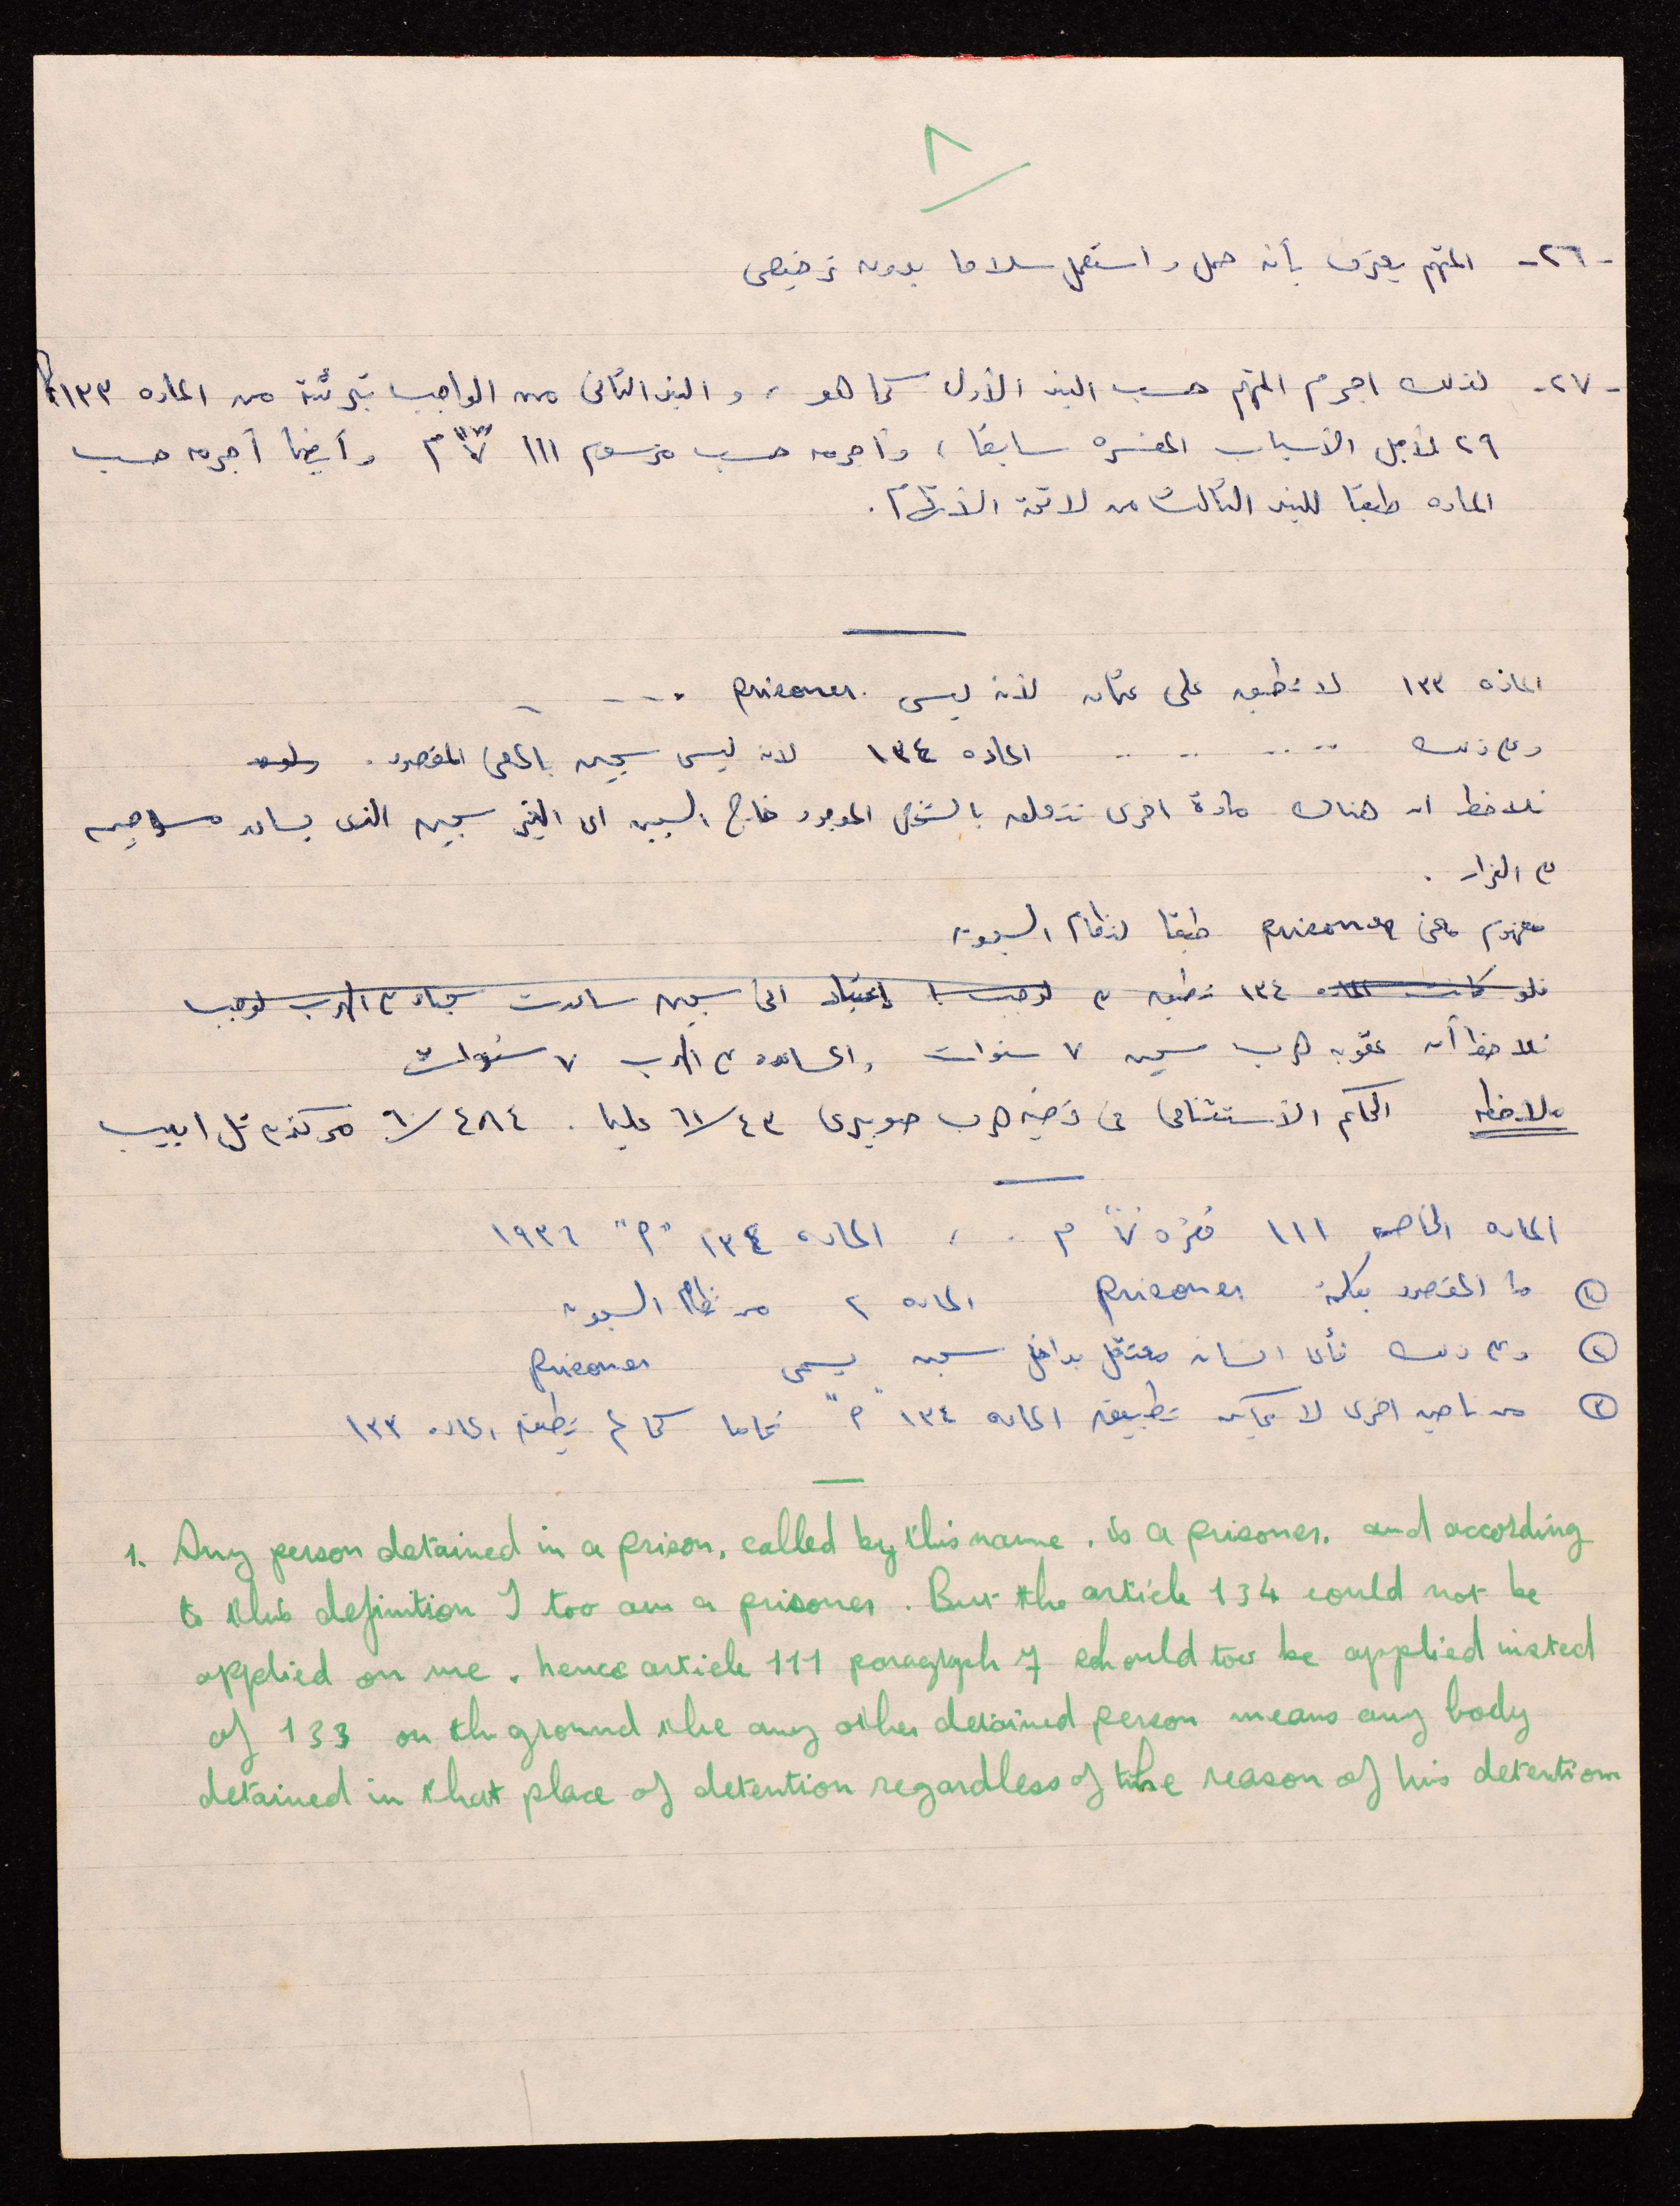 ٨
-٢٦- المتهم يعترف بأنه حمل و استعمل سلاحا بدون ترخيص
-٢٧- لذلك اجرم المتهم حسب البند الأول كما هو، و البند الثانى من الواجب تبرئته من الماده ١٣٣
٢٩ لأجل الأسباب المفسره سابقا، وأجرمه حسب مرسوم ١١١ "٧" م وأيضا أجرمه حسب
الماده طبقا للبند الثالث من لائحة الأتهام.
الماده ١٣٣ لا تطبق على عثمان لأنه ليس prisoner.
ومع ذلك .. .. .. .. الماده ١٣٤ لانه ليس سجين بالمعنى المقصود.
نلاحظ ان هناك مادة اخرى تتعلق بالشخص الموجود خارج السجن اى الغير سجين الذى يساعد
فى الفرار.
مفهوم معنى prisoner طبقا لنظام السجون
فلو كانت الماده ١٣٤ تطبق لوجب اعتبار انى سجين ساعدت سجناء فى الهرب لوجب
نلاحظ أن عقوبة هرب سجين ٧ سنوات والمساعده فى الهرب ٧ سنوات
ملاحظه الحكم الأستئنافى فى قضية هرب ٦١/٤٣ عليا. ٦٠/٤٨٤ مركزيه تل ابيب
الماده الخاصه ١١١ فقره "٧" م . ، الماده ١٣٤ "م" ١٩٣٦
① ما المقصود بكلمة prisoner الماده ٢ من نظام السجون
② ومع ذلك فأى انسان معتقل بداخل سجن يسمى prisoner
③ من ناحيه اخرى لا يمكن تطبيق الماده ١٣٤ "م" تماما كما لم تطبق الماده ١٣٣
1. Any person detained in a prison, called by this name, is a prisoner. and according
to this definition I too am a prisoner. But the article 134 could not be
applied on me. hence article 111 paragrgph 7 should too be applied insted
of 133 on the ground the any other detained person means any body
detained in that place of detention regardless of the reason of his detention